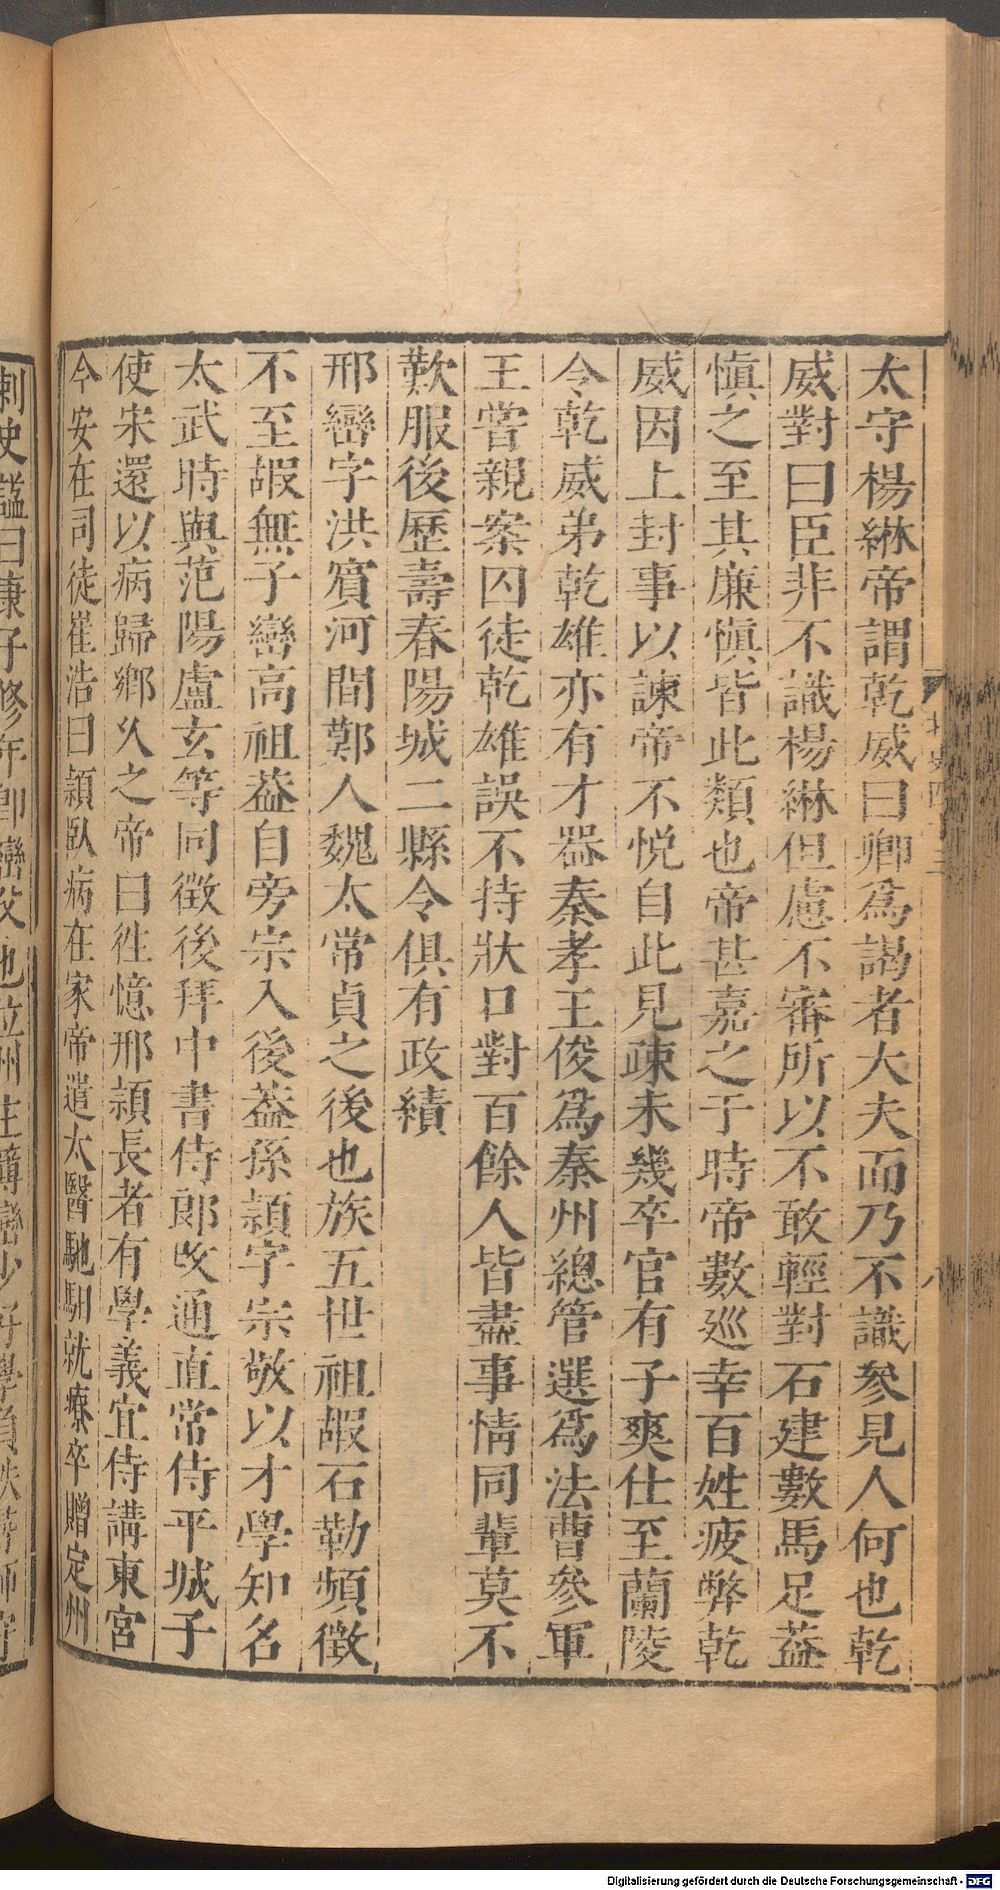 太守楊綝帝謂乾威曰卿爲謁者大夫而乃不識參見人何也乾
威對曰臣非不識楊綝但慮不審所以不敢輕對石建數馬足葢
愼之至其廉愼皆此類也帝甚嘉之于時帝數巡幸百姓疲弊乾
威因上封事以諫帝不悅自此見疎未幾卒官有子爽仕至蘭陵
令乾威弟乾雄亦有才器秦孝王俊爲秦州總管選爲法曹參軍
王嘗親案囚徒乾雄誤不持狀口對百餘人皆盡事情同輩莫不
歎服後歷壽春陽城二縣令俱有政績
邢巒字洪賓河間鄚人魏太常貞之後也族五世祖嘏石勒頻徵
不至嘏無子巒高祖葢自旁宗入後葢孫頴字宗敬以才學知名
太武時與范陽盧玄等同徵後拜中書侍郎改通直常侍平城子
使宋還以病歸鄉乆之帝曰徃憶邢頴長者有學義宜侍講東宮
今安在司徒崔浩曰頴臥病在家帝遣太醫馳馹就療卒贈定州
刺史謚曰康子修年卽巒父也位州主簿巒少好學負帙尋師守
Digitalisierung gefördert durch die Deutsche Forschungsgemeinschaft - DFG